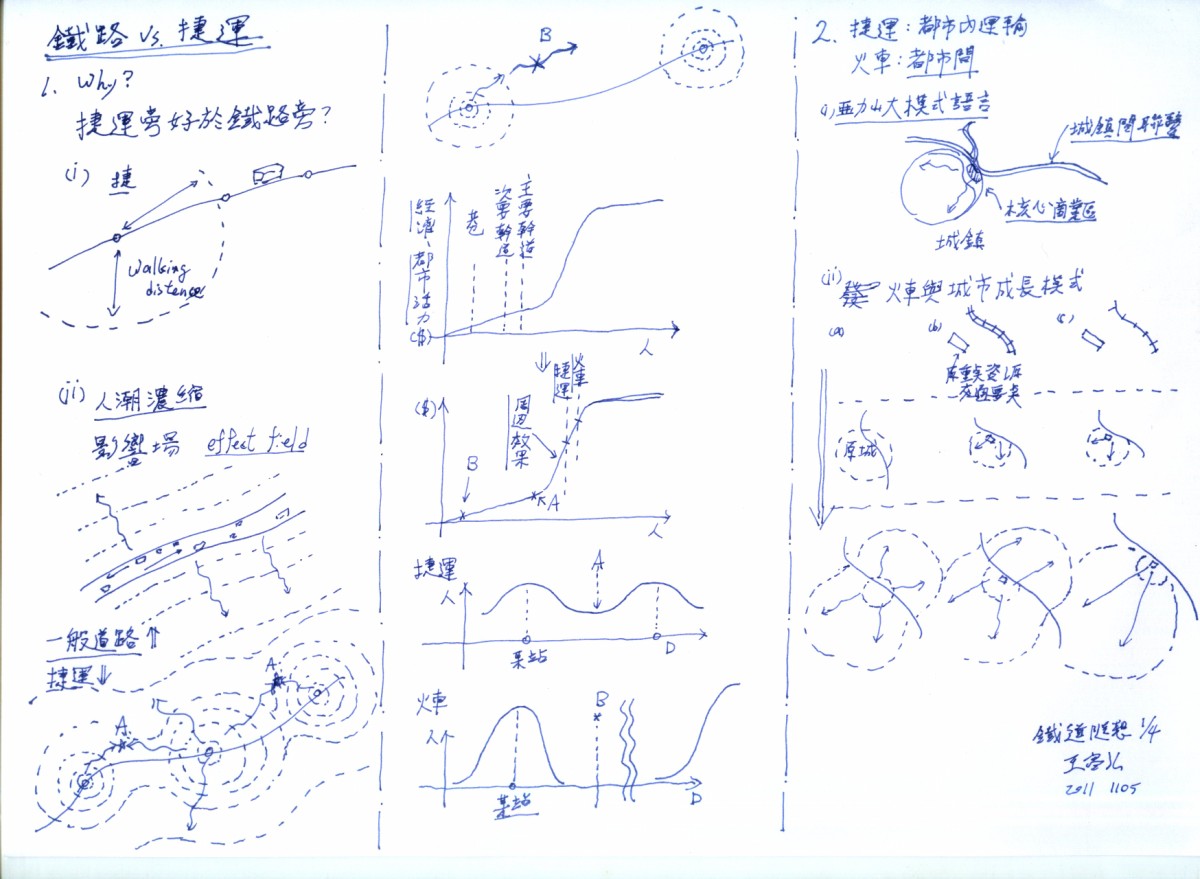 鐵路 vs. 捷運
1. Why?
捷運旁好於鐵路旁?
(i) 捷
Walking
distence
(ii) 人潮濃縮
影響場 effect field
一般道路⇑
捷運⇓
A
A
B
經濟、都市活力
($)
巷
次要幹道
主要幹道
人
⇓
捷運
火車
($)
周边效果
B
A
人
捷運
人
A
某站
D
火車
人
B
某站
D
2. 捷運:都市內運輸
火車:都市間
(i) 亞力山大模式語言
城鎮間聯繫
核心商業區
城鎮
(ii) 火車與城市成長模式
(a)
(b)
(c)
原城
鐵道隨想 1/4
2011 1105